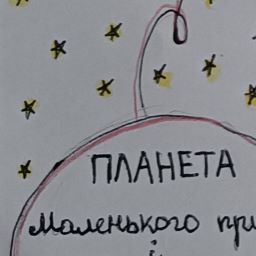 ПЛАНЕТА
Маленького при
і